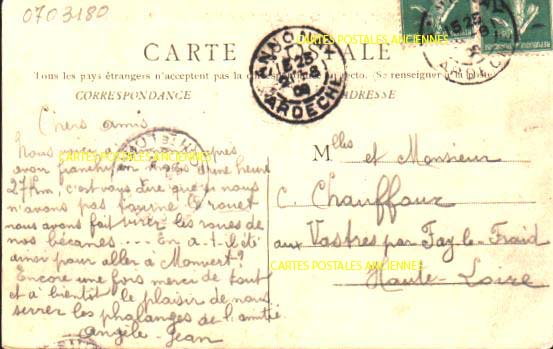 0703180
CARTE POSTALE
CARTES POSTALES ANCIENNES
Tous les pays étrangers n'acceptent pas la correspondance au recto. (Se renseigner à la poste)
CORRESPONDANCE
ADRESSE
ANDANCE
ARDECHE
15 25
09
Chers amis
Nous voici après
CARTES POSTALES ANCIENNES
avoir franchi en moins d'une heure
27 km, c'est vous dire que si nous
n'avons pas tourné le rouet
nous avons fait virer les roues de
nos bécanes.... En a-t-il été
ainsi pour aller à Monvert?
Encore une fois merci de tout
et à bientôt le plaisir de nous
serrer les phalanges de l'amitié
Angèle - Jean
Melles et Monsieur
C. Chauffour
aux Vastres par Fay-le-Froid
CARTES POSTALES ANCIENNES
Haute-Loire